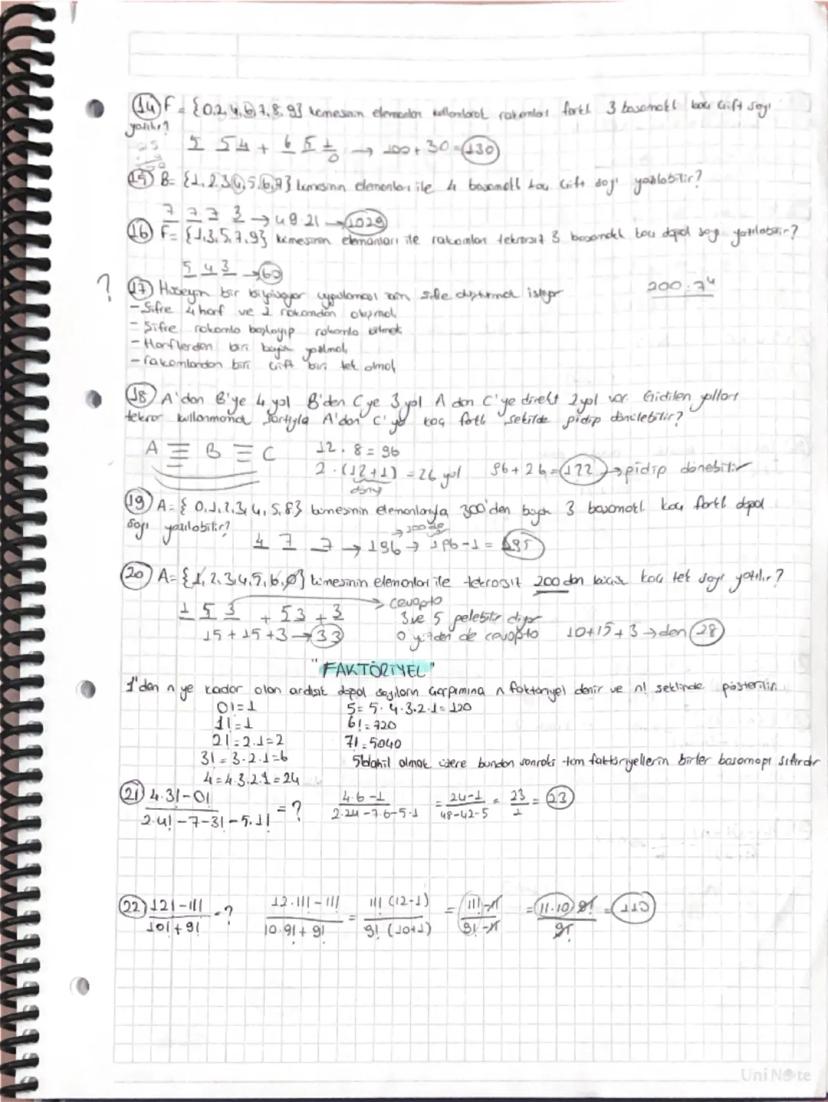 14) F = {0,2,4,6,7,8,9} kümesinin elemanları kullanılarak rakamları farklı 3 basamaklı kaç çift sayı
yazılır?
5 5 4 + 6 5 1 → 100+30=130
0
15) B= {1,2,3,4,5,6,7} kümesinin elemanları ile 4 basamaklı kaç çift sayı yazılabilir?
7 7 7 3 → 49.21 → 1029
16) F= {1,3,5,7,9} kümesinin elemanları ile rakamları tekrarsız 3 basamaklı kaç doğal sayı yazılabilir?
5 4 3 → 60
? 17) Hüseyin bir bilgisayar uygulaması için şifre oluşturmak istiyor 200.7⁴
- Şifre 4 harf ve 2 rakamdan oluşmalı
- Şifre rakamla başlayıp rakamla bitmek
- Harflerden biri büyük yazılmalı
- rakamlardan biri çift biri tek olmalı
18) A'dan B'ye 4 yol B'den C'ye 3 yol A dan C'ye direkt 2 yol var. Gidilen yolları
tekrar kullanmamak şartıyla A'dan C'ye kaç farklı şekilde gidip dönülebilir?
A ≡ B ≡ C 12.8=96
2.(12+1) = 26 yol 96+26=122 → gidip dönebilir
dönüş
19) A= { 0,1,2,3,4,5,8} kümesinin elemanlarıyla 300'den büyük 3 basamaklı kaç farklı doğal
sayı yazılabilir? → 300 de
4 7 7 → 196 → 196-1= 195
20) A= {1,2,3,4,5,6,0} kümesinin elemanları ile tekrarsız 200 dan küçük kaç tek sayı yazılır?
1 5 3 + 5 3 + 3 → cevapta
3 ve 5 gelebilir diyor
15+15+3 → 33 0 yüzden de cevapta 10+15+3 → den 28
"FAKTÖRİYEL"
1'den n ye kadar olan ardışık doğal sayıların çarpımına n faktöriyel denir ve n! şeklinde gösterilir.
0!=1 5= 5.4.3.2.1=120
1!=1 6!=720
2!=2.1=2 7!=5040
3!=3.2.1=6 5 dahil olmak üzere bundan sonraki tüm faktöriyellerin birler basamağı sıfırdır
4=4.3.2.1=24
21) 4.3!-0! / 2.4!-7-3!-5.1! = ? 4.6-1 / 2.24-7.6-5.1 = 24-1 / 48-42-5 = 23 / 1 = 23
22) 12!-11! / 10!+9! = ? 12.11!-11! / 10.9!+9! = 11!(12-1) / 9!(10+1) = 11!-11 / 9!-11 = 11.10 9! / 9! = 110
UniNote